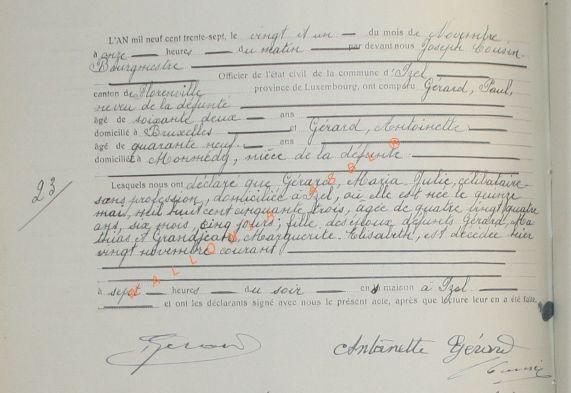 L'AN mil neuf cent trente-sept, le vingt et un du mois de Novembre
à onze heures du matin par devant nous Joseph Cousin
Bourgmestre
Officier de l'état civil de la commune d'Izel
canton de Florenville province de Luxembourg, ont comparu Gérard, Paul,
neveu de la défunte
âgé de soixante deux ans
domicilié à Bruxelles et Gérard, Antoinette
âgé de quarante neuf ans
domicilié à Monmédy, nièce de la défunte
23
Lesquels nous ont déclaré que Gérard, Maria Julie, célibataire
sans profession, domiciliée à Izel, où elle est née le quinze
mai, mil huit cent cinquante trois, agée de quatre vingt quatre
ans, six mois, cinq jours, fille des époux défunts Gérard, Ma
thias et Grandjean, Marguerite Elisabeth, est décédée hier
vingt novembre courant
à sept heures du soir en sa maison à Izel
et ont les déclarants signé avec nous le présent acte, après que lecture leur en a été faite.
Gérard
Antoinette Gérard
WALLONIA ASBL ®